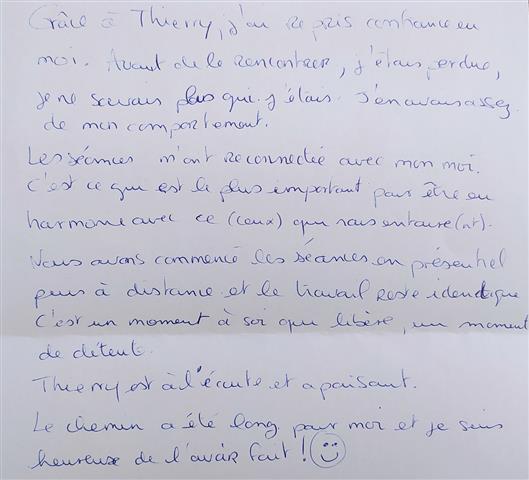 Grâce à Thierry, j'ai repris confiance en
moi. Avant de le rencontrer, j'étais perdue,
je ne savais plus qui j'étais. J'en avais assez
de mon comportement.
Les séances m'ont reconnectée avec mon moi.
C'est ce qui est le plus important pour être en
harmonie avec ce (ceux) qui nous entoure(nt).
Nous avons commencé les séances en présentiel
puis à distance et le travail reste identique
C'est un moment à soi qui libère, un moment
de détente.
Thierry est à l'écoute et apaisant.
Le chemin a été long pour moi et je suis
heureuse de l'avoir fait !